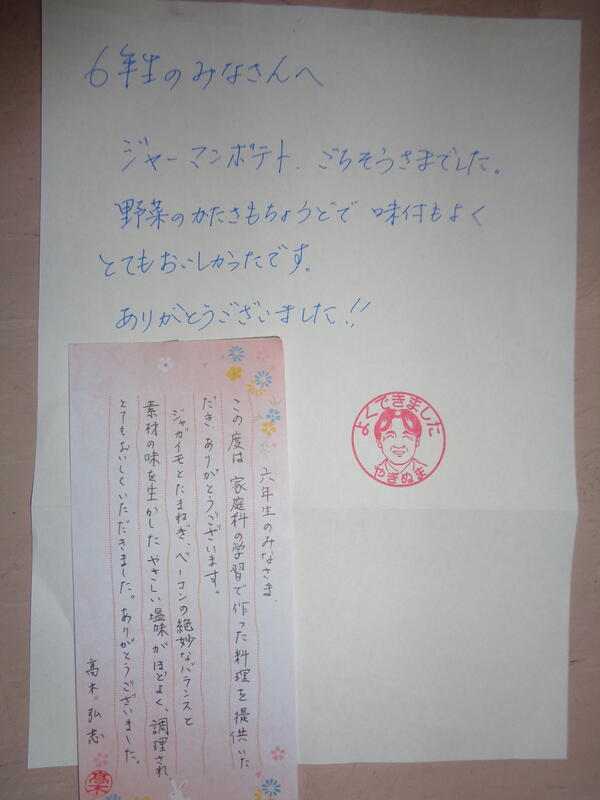 6年生のみなさんへ
ジャーマンポテト、ごちそうさまでした。
野菜のかたさもちょうどで 味付もよく
とてもおいしかったです。
ありがとうございました!!
よくできました
やぎぬま
六年生のみなさま、
この度は 家庭科の学習で作った料理を提供いた
だき、ありがとうございます。
ジャガイモとたまねぎ、ベーコンの絶妙なバランスと
素材の味を生かしたやさしい塩味がほどよく、調理され
とてもおいしくいただきました。ありがとうございました。
髙木 弘志
髙木